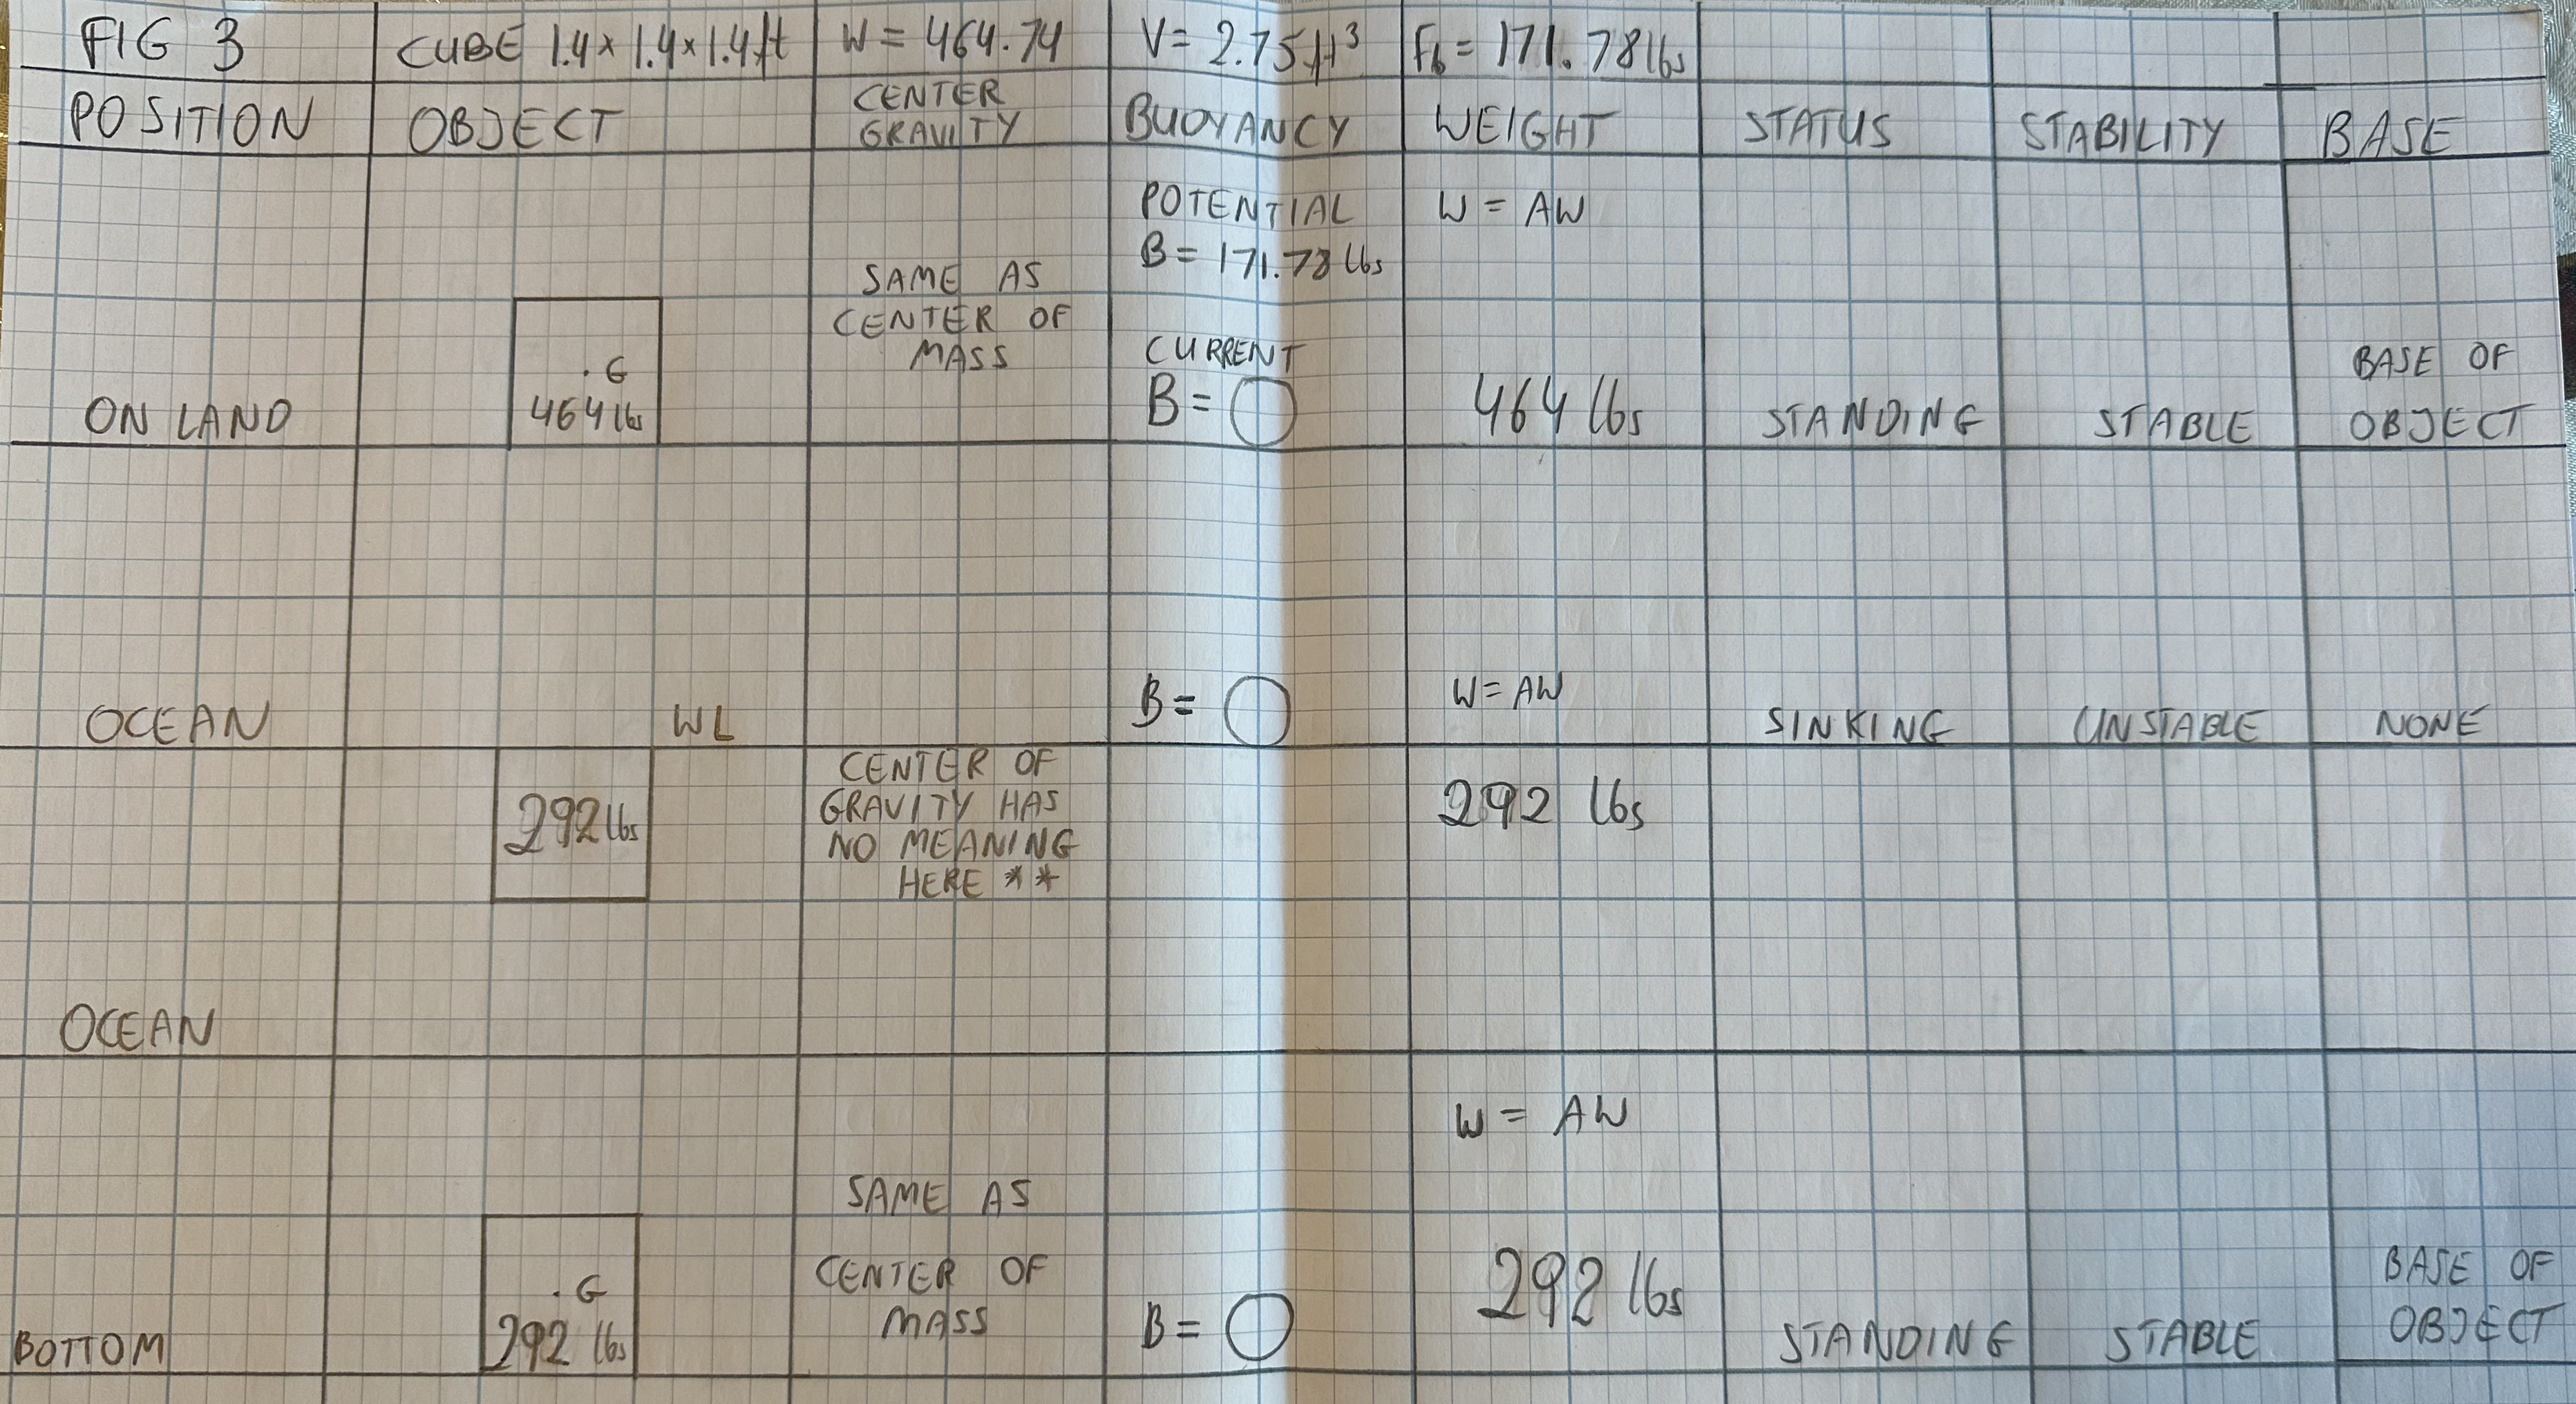 FIG 3 CUBE 1.4 x 1.4 x 1.4 ft W = 464.74 V = 2.75 ft³ Fb = 171.78 lbs
POSITION OBJECT CENTER GRAVITY BUOYANCY WEIGHT STATUS STABILITY BASE
POTENTIAL W = AW
B = 171.78 lbs
SAME AS
CENTER OF
MASS
CURRENT
. G
464 lbs
ON LAND
B = O
464 lbs
STANDING
STABLE
BASE OF
OBJECT
OCEAN
WL
B = O
W = AW
SINKING
UNSTABLE
NONE
292 lbs
CENTER OF
GRAVITY HAS
NO MEANING
HERE **
292 lbs
OCEAN
W = AW
. G
292 lbs
SAME AS
CENTER OF
MASS
BOTTOM
B = O
292 lbs
STANDING
STABLE
BASE OF
OBJECT